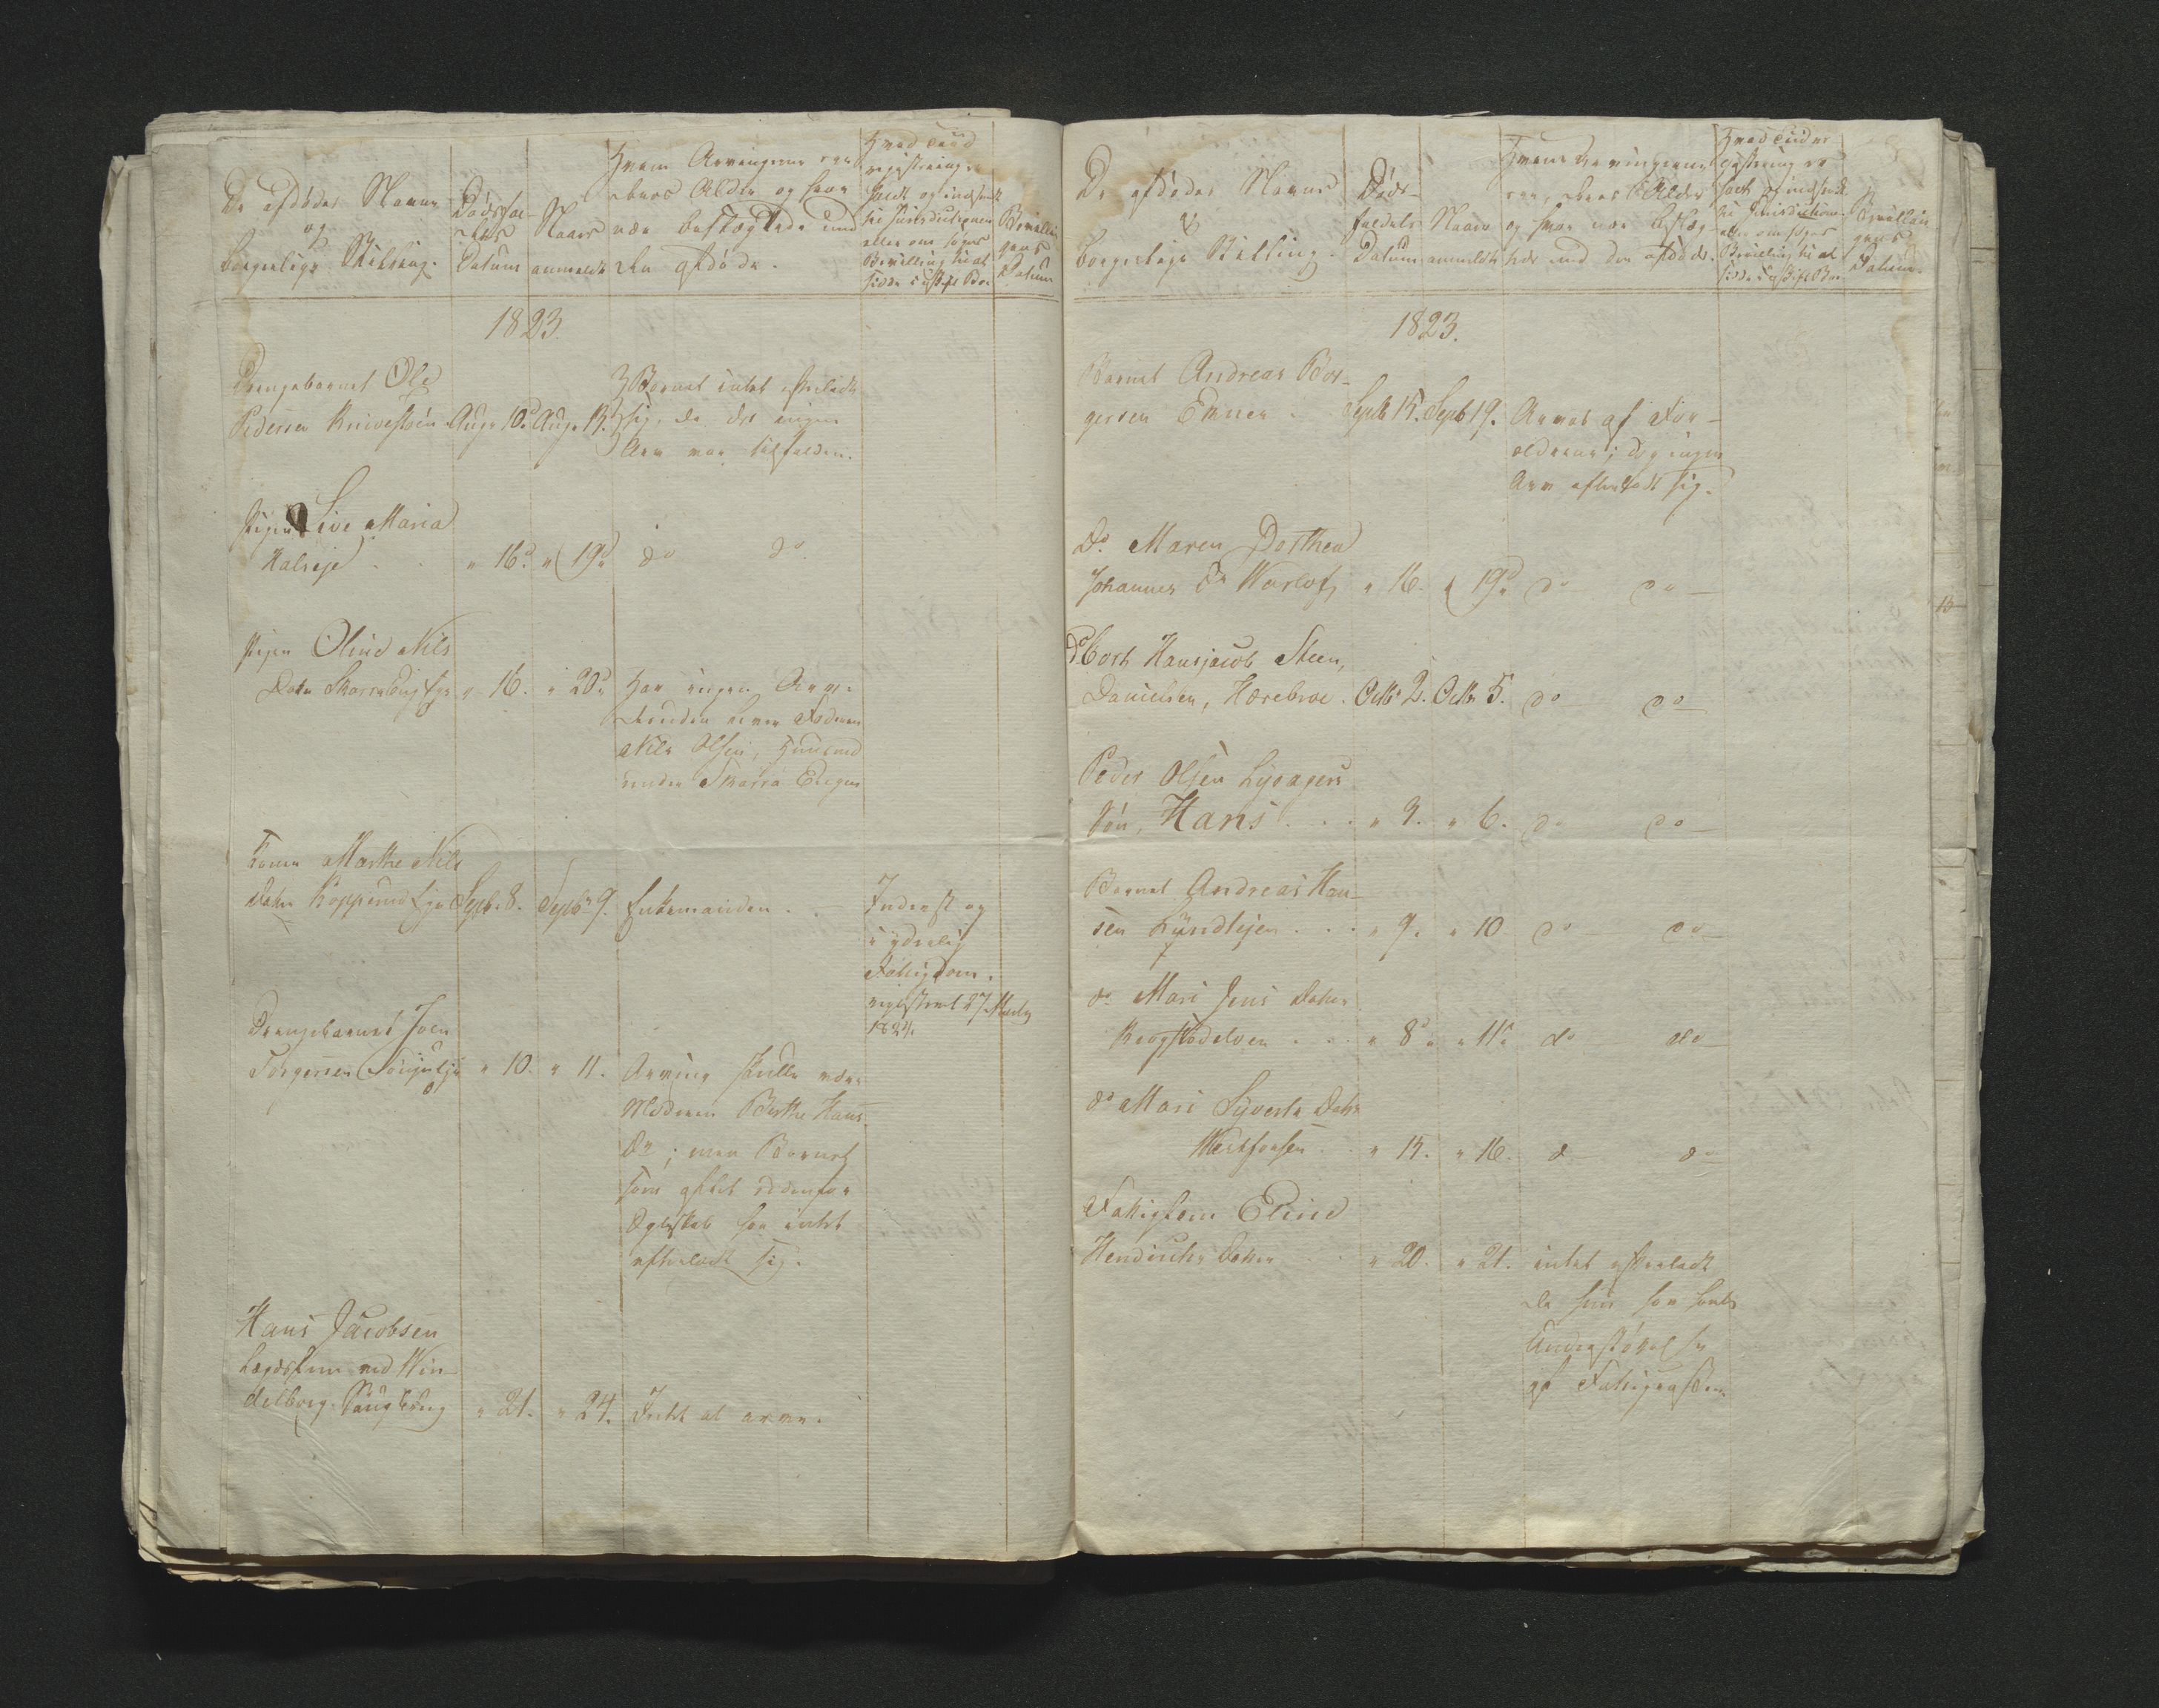 De afdødes Navne
og
borgerlige Stilling.
Dødsfal-
dets
Datum
Naar
anmeldt
Hvem Arvingerne ere
deres Alder og hvor
nær beslægtede med
den afdøde.
Hvad Tiid
registrering er
skeet og indsendt
til Jurisdictionen
eller om søges
Bevilling til at
sidde i uskift Boe
Bevillin-
gens
Datum
1823.
Drengebarnet Ole
Pedersen Aug. 10. Aug. 13. Barnet intet efterladt
sig, da det ingen
Arv var tilfalden.
Pigen Live Maria
Halseje . . " 16. " 19. do do
Pigen Oline Nils
Dater Skarra Eng Eje " 16. " 20. Har ingen Arv,
lever Faderen
Nils Olsen, Huusmand
under Skarra Engen
Konen Marthe Nils
Datter Kopperud Eje Septb. 8. Septbr 9. Enkemanden . Inderst og
i yderlig
Fattigdom.
registreret 27 Marts
1824.
Drengebarnet Joen
Torgersen " 10. " 11. Arving skulle være
Moderen Berthe Hans
Dr; men Barnet
som aflet udenfor
Egteskab har intet
efterladt sig.
Hans Jacobsen
Lægdslem ved Win-
delborg Saugbrug " 21. " 24. Intet at arve.
De afdødes Navne
&
borgerlige Stilling.
Døds-
faldets
Datum
Naar
anmeldt
Hvem Arvingerne
ere, deres Alder
og hvor nær beslæg-
tede med den afdøde.
Hvad Tiid re-
gistrering er
skeet og indsendt
til Jurisdiction.
eller om søges
Bevilling til at
sidde i uskift Boe
Bevillin-
gens
Datum.
1823.
Barnet Andreas Bor-
gersen Eknes . Septb 15. Septb 19. Arves af For-
ældrene; dog ingen
Arv efterladt sig.
Do. Maren Dorthea
Johannes Dr Warlof, " 16. " 19. do do
do Bort Hansjacob Steen,
Danielsen, Hærebroe. Octbr 2. Octbr 5. do do
Peder Olsen Lysagers
Søn, Hans . . . " 3. " 6. do do
Barnet Andreas Han-
sen Lyndlejen . . . " 9. " 10 do do
do Mari Jens Datter
Krogstadelven . . . " 8. " 11. do do
do Mari Syverts Datr
. . " 15. " 16. do do
Fattiglem Eline
Hendrichs Datter . . " 20. " 21. intet efterladt
da hun har havt
Understøttelse
af Fattigkassen